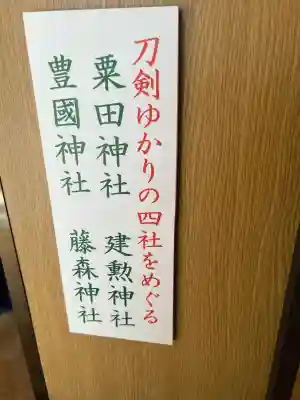 刀剣ゆかりの四社をめぐる
粟田神社 建勲神社
豊國神社 藤森神社